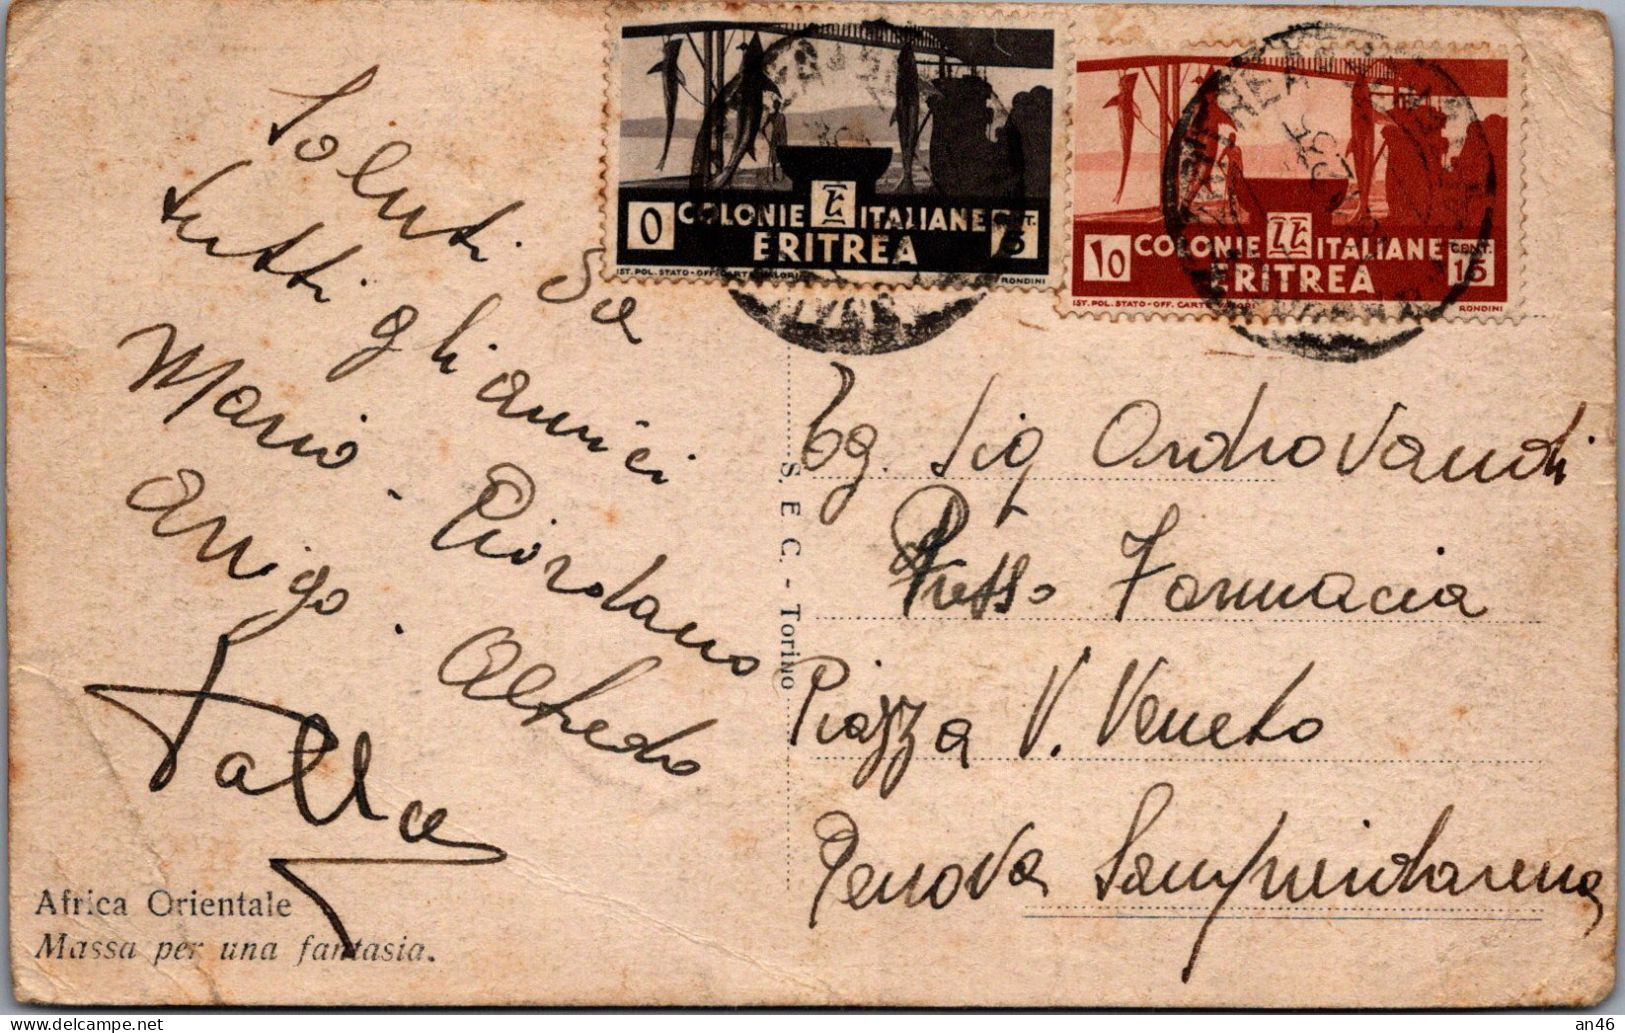 Saluti da
tutti gli amici
Mario - Giordano
Arrigo. Alfredo
Falla
Africa Orientale
Massa per una fantasia.
S. E. C. - Torino
COLONIE ITALIANE
ERITREA
CENT.
15
IST. POL. STATO - OFF. CARTE VALORI
RONDINI
COLONIE ITALIANE
ERITREA
CENT.
15
IST. POL. STATO - OFF. CARTE VALORI
RONDINI
ERITREA
Eg. Sig Ondrovandi
Presso Farmacia
Piazza V. Veneto
Genova Sampierdarena
an46